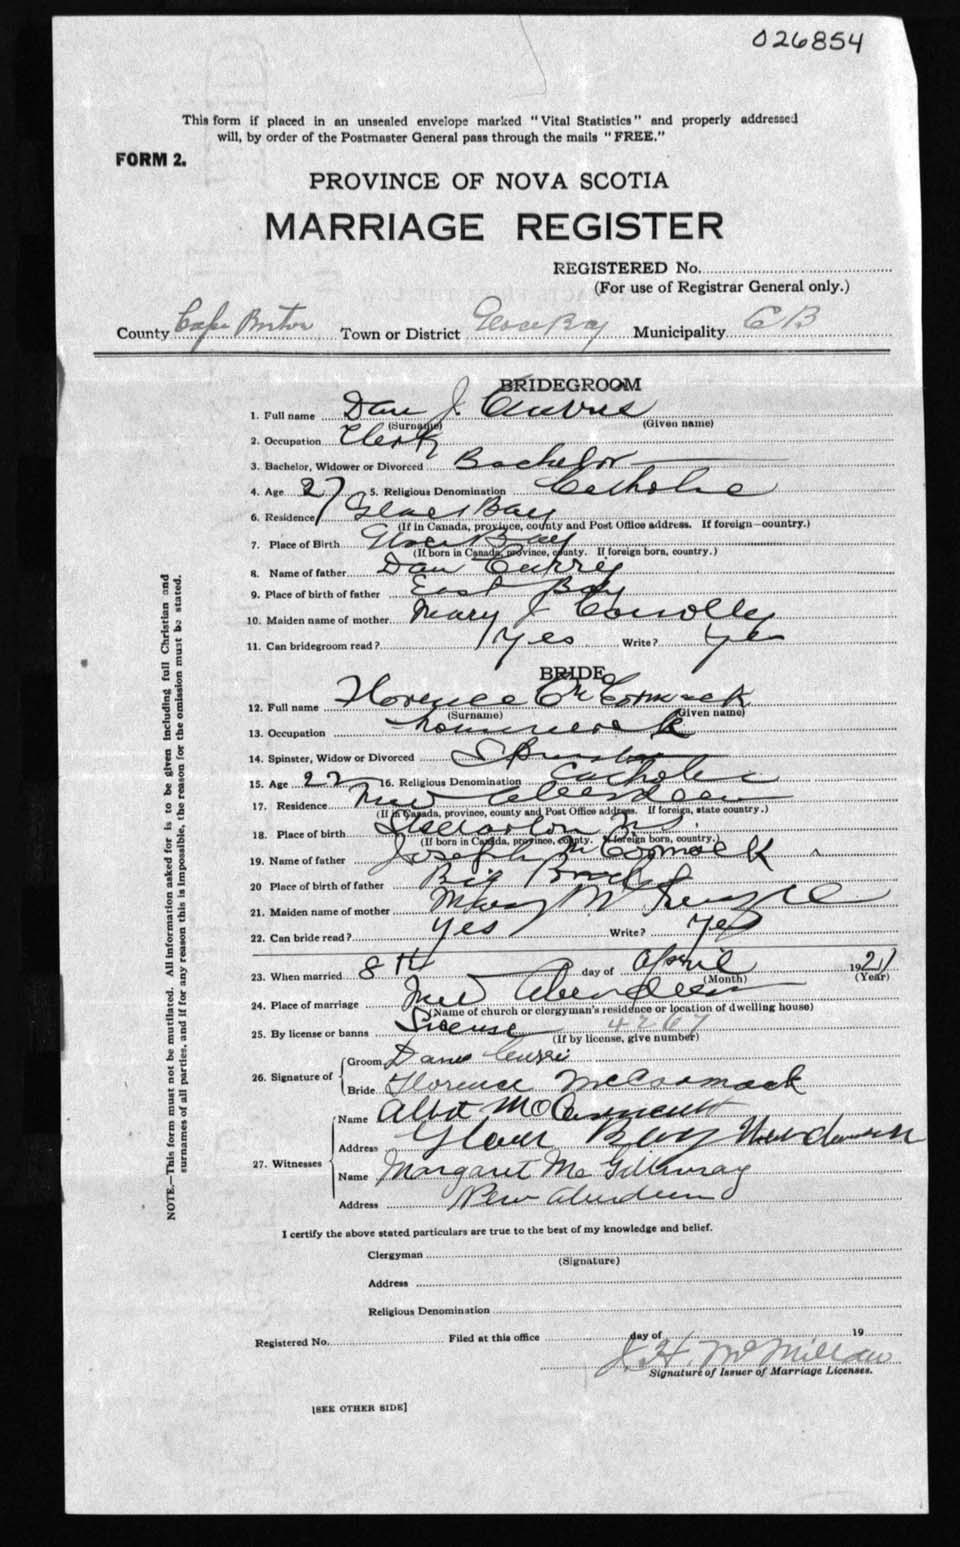 026854
This form if placed in an unsealed envelope marked "Vital Statistics" and properly addressed
will, by order of the Postmaster General pass through the mails "FREE."
FORM 2.
PROVINCE OF NOVA SCOTIA
MARRIAGE REGISTER
REGISTERED No.
(For use of Registrar General only.)
County Cape Breton Town or District Glace Bay Municipality C B
BRIDEGROOM
1. Full name Dan J.
(Surname) (Given name)
2. Occupation Clerk
3. Bachelor, Widower or Divorced Bachelor
4. Age 27 5. Religious Denomination Catholic
6. Residence Glace Bay
(If in Canada, province, county and Post Office address. If foreign—country.)
7. Place of Birth Glace Bay
(If born in Canada, province, county. If foreign born, country.)
8. Name of father Dan Currie
9. Place of birth of father East Bay
10. Maiden name of mother Mary J Conolly
11. Can bridegroom read? Yes Write? Yes
BRIDE
12. Full name Florence McCormack
(Surname) (Given name)
13. Occupation housework
14. Spinster, Widow or Divorced Spinster
15. Age 22 16. Religious Denomination Catholic
17. Residence New Aberdeen
(If in Canada, province, county and Post Office address. If foreign, state country.)
18. Place of birth Stellarton N.S.
(If born in Canada, province, county. If foreign born, country.)
19. Name of father Joseph McCormack
20 Place of birth of father Big
21. Maiden name of mother Mary
22. Can bride read? Yes Write? Yes
23. When married 8th day of April 1921
(Month) (Year)
24. Place of marriage New Aberdeen
(Name of church or clergyman's residence or location of dwelling house)
25. By license or banns License 4267
(If by license, give number)
26. Signature of Groom Currie
Bride Florence McCormack
27. Witnesses Name
Address Glace Bay
Name Margaret McGillivray
Address New Aberdeen
I certify the above stated particulars are true to the best of my knowledge and belief.
Clergyman
(Signature)
Address
Religious Denomination
Registered No. Filed at this office day of 19
J. H. McMillan
Signature of Issuer of Marriage Licenses.
[SEE OTHER SIDE]
NOTE.—This form must not be mutilated. All information asked for is to be given including full Christian and
surnames of all parties, and if for any reason this is impossible, the reason for the omission must be stated.